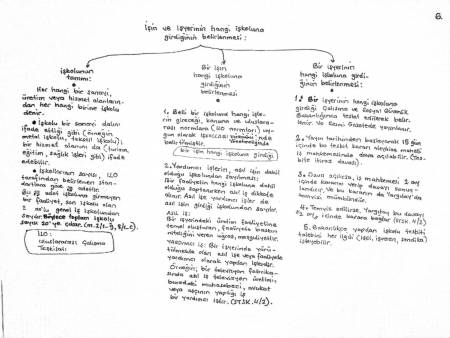 6.
İşin ve işyerinin hangi işkoluna
girdiğinin belirlenmesi:
İşkolunun
tanımı:
Her hangi bir sanayi,
üretim veya hizmet alanların-
dan her hangi birine işkolu
denir.
• İşkolu bir sanayi dalını
ifade ettiği gibi (örneğin
metal işkolu, tekstil işkolu),
bir hizmet alanını da (turizm,
eğitim, sağlık işleri gibi) ifade
edebilir.
• İşkollarının sayısı, ILO
tarafından belirlenen stan-
dartlara göre
işkoluna girmeyen
bir faaliyet, son işkolu olan
genel iş işkolundan
sayılır. Böylece
sayısı 20'ye çıkar.
ILO:
Uluslararası Çalışma
Teşkilatı
Bir işin
hangi işkoluna
girdiğinin
belirlenmesi:
1. Belli bir işkoluna hangi işle-
rin gireceği, kanuna ve uluslara-
rası normlara (ILO normları) uy-
gun olarak
belirtilmiştir.
bir işin hangi işkoluna girdiği
2. Yardımcı işler, asıl işin dahil
olduğu işkolundan sayılması:
Bir faaliyetin hangi işkoluna dahil
olduğu saptanırken asıl iş dikkate
alınır. Yardımcı işler de asıl
işin girdiği işkolundan sayılır.
ASIL İŞ:
Bir işyerindeki üretim faaliyetine
temel oluşturan, faaliyete
niteliğini veren uğraş, meşguliyettir.
YARDIMCI İŞ: Bir işyerinde yürü-
tülmekte olan asıl işe veya faaliyete
yardımcı olarak yapılan işlerdir.
Örneğin; bir televizyon fabrika-
sında asıl iş televizyon üretimi;
buradaki muhasebeci, avukat
veya aşçının yaptığı iş
bir yardımcı iştir.
Bir işyerinin
hangi işkoluna girdi-
ğinin belirlenmesi:
1. Bir işyerinin hangi işkoluna
girdiği Çalışma ve Sosyal Güvenlik
Bakanlığınca tespit edilerek belir-
lenir. Ve Resmi Gazetede yayınlanır.
2. Yayın tarihinden başlayarak 15 gün
içinde bu tespit kararı aleyhine mahalli
iş mahkemesinde dava açılabilir. (Tes-
bite itiraz davası).
3. Dava açılırsa, iş mahkemesi 2 ay
içinde kararını
4. Temyiz edilirse, Yargıtay bu davayı
2 ay içinde karara bağlar
5. Bakanlıkça yapılan işkolu tesbiti
talebini her ilgili (işçi, işveren, sendika)
isteyebilir.